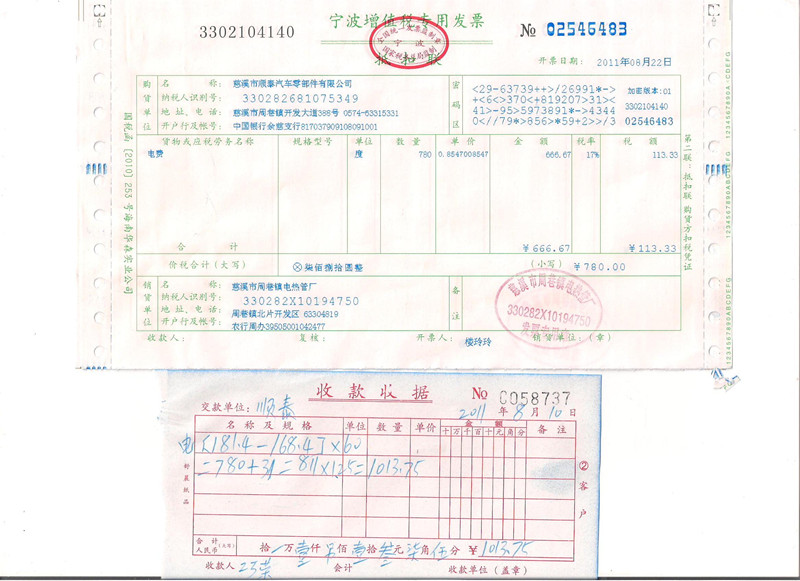 宁波增值税专用发票
3302104140
№ 02546483
全国统一发票监制章
宁波
国家税务总局监制
抵扣联
开票日期: 2011年08月22日
购货单位
名 称: 慈溪市顺泰汽车零部件有限公司
纳税人识别号: 330282681075349
地 址、电 话: 慈溪市周巷镇开发大道388号 0574-63315331
开户行及帐号: 中国银行余慈支行817037909108091001
密码区
<29-63739++>/26991*-> 加密版本:01
+<6<>370<+819207>31><
41>-95>5973891*->4344 3302104140
0<//79*>856>*59+2>>/3 02546483
货物或应税劳务名称 规格型号 单位 数 量 单 价 金 额 税率 税 额
电费 度 780 0.8547008547 666.67 17% 113.33
合 计 ￥666.67 ￥113.33
价税合计(大写) ⊗柒佰捌拾圆整 (小写) ￥780.00
销货单位
名 称: 慈溪市周巷镇电热管厂
纳税人识别号: 330282X10194750
地 址、电 话: 周巷镇北片开发区 63304819
开户行及帐号: 农行周办39505001042477
备注
慈溪市周巷镇电热管厂
330282X10194750
发票专用章
收款人: 复核: 开票人: 楼玲玲 销货单位:(章)
国税函〔2010〕253号海南华森实业公司
第二联:抵扣联 购货方扣税凭证
1234567890ABCDEFG
收款收据
№ 0058737
交款单位: 顺泰 2011年8月10日
名 称 及 规 格 单位 数 量 单价 金 额 备 注
十万千百十元角分
电 [181.4-168.4]×60
=780+31=811×1.25=1013.75
②客户
合计人民币(大写) 拾 万壹仟零佰壹拾叁元柒角伍分 ￥1013.75
收款人 会计 收款单位(盖章)